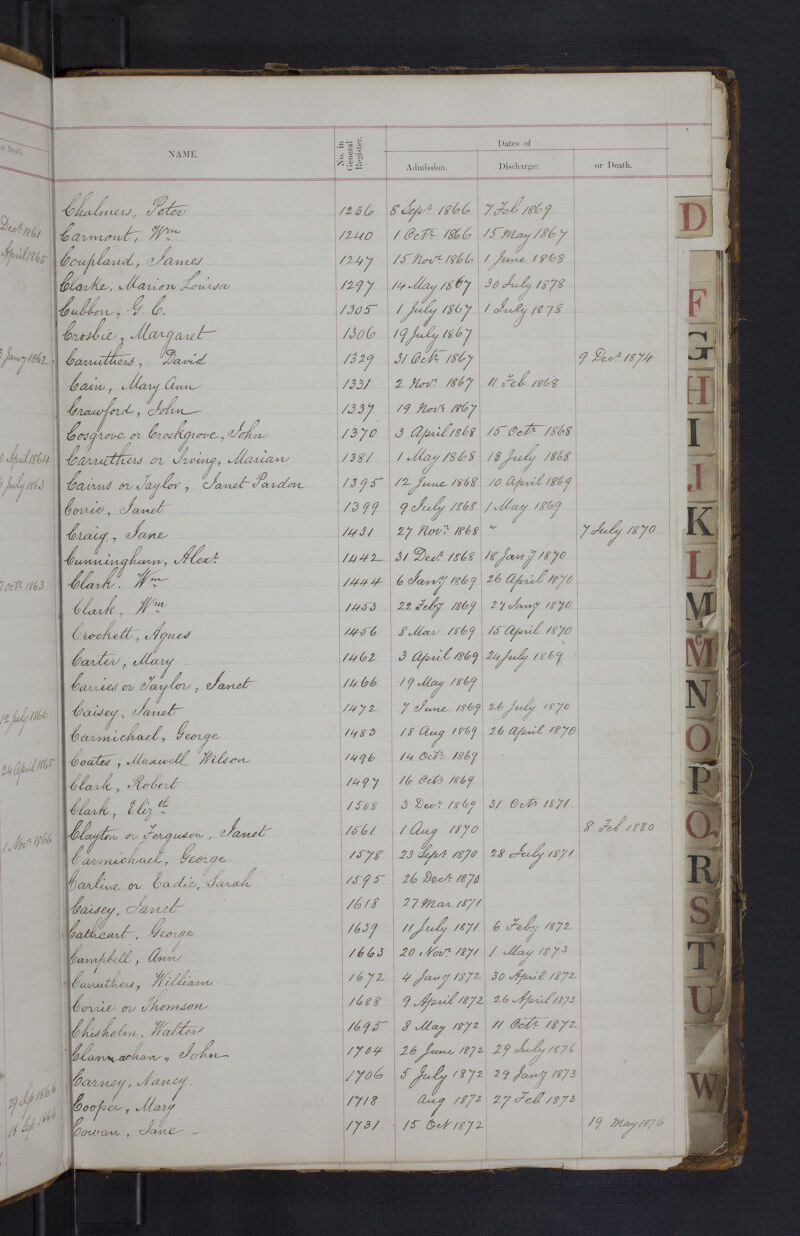 or Death.
Dect. 1861
April 1865
Jany 1862
April 1864
July 1863
Octr. 1863
12 July 1866
24 April 1865
1 Novr. 1866
29 Sep 1866
18 Sep. 1866
NAME. No. in General Register. Dates of
Admission. Discharge. or Death.
Chalmers, Peter 1236 8 Sept. 1866 7 Feb 1869
Carmont, Wm 1240 1 Octr. 1866 15 May 1867
Coupland, James 1247 15 Novr. 1866 1 June 1868
Clarke, Marion Louisa 1297 14 May 1867 30 July 1878
Cubbon, G. C. 1305 1 July 1867 1 July 1878
Crosbie, Margaret 1306 19 July 1867
Carruthers, David 1329 31 Octr. 1867 9 Dect. 1874
Cain, Mary Ann 1331 2 Novr. 1867 11 Feb 1868
Crawford, John 1337 19 Novr. 1867
Cosgrove or Croskgrove, John 1370 3 April 1868 15 Octr. 1868
Carruthers or Irving, Marian 1381 1 May 1868 18 July 1868
Cairns or Taylor, Janet Pardon 1395 12 June 1868 10 April 1869
Corrie, Janet 1399 9 July 1868 1 May 1869
Craig, Jane 1431 27 Novr. 1868 " 7 July 1870
Cunningham, Alexr. 1442 31 Dect. 1868 18 Jany 1870
Clark. Wm 1444 6 Jany 1869 26 April 1870
Clark, Wm 1453 22 Feby 1869 27 Jany 1870
Crockett, Agnes 1456 8 Mar 1869 15 April 1870
Carter, Mary 1462 3 April 1869 24 July 1869
Carries or Taylor, Janet 1466 19 May 1869
Caisey, Janet 1472 7 June 1869 26 July 1870
Carmichael, George 1483 18 Aug 1869 26 April 1870
Coates, Maxwell Wilson 1496 14 Octr. 1869
Clark, Robert 1497 16 Octr. 1869
Clark, Elizth 1508 3 Decr. 1869 31 Octr. 1871
Clayton or Ferguson, Janet 1561 1 Aug 1870 8 Feb 1880
Carmichael, George 1578 23 Sept. 1870 28 July 1871
Carline or Eadie, Sarah 1595 26 Dect. 1870
Caisey, Janet 1618 27 Mar 1871
Cathcart, George 1639 11 July 1871 6 Feby 1872
Campbell, Ann 1663 20 Novr. 1871 1 May 1873
Carruthers, William 1672 4 Jany 1872 30 April 1872
Corrie or Thomson 1688 9 April 1872 26 April 1873
Chisholm, Walter 1695 8 May 1872 11 Octr. 1872
Clannachan, John 1704 26 June 1872 29 July 1876
Carney, Nancy. 1706 5 July 1872 29 Jany 1873
Cooper, Mary 1718 Aug 1872 27 Feb 1873
Cowan, Jane 1731 15 Oct 1872 19 May 1876
D
F
G
H
I
J
K
L
M
Mc
N
O
P
Q
R
S
T
U
W